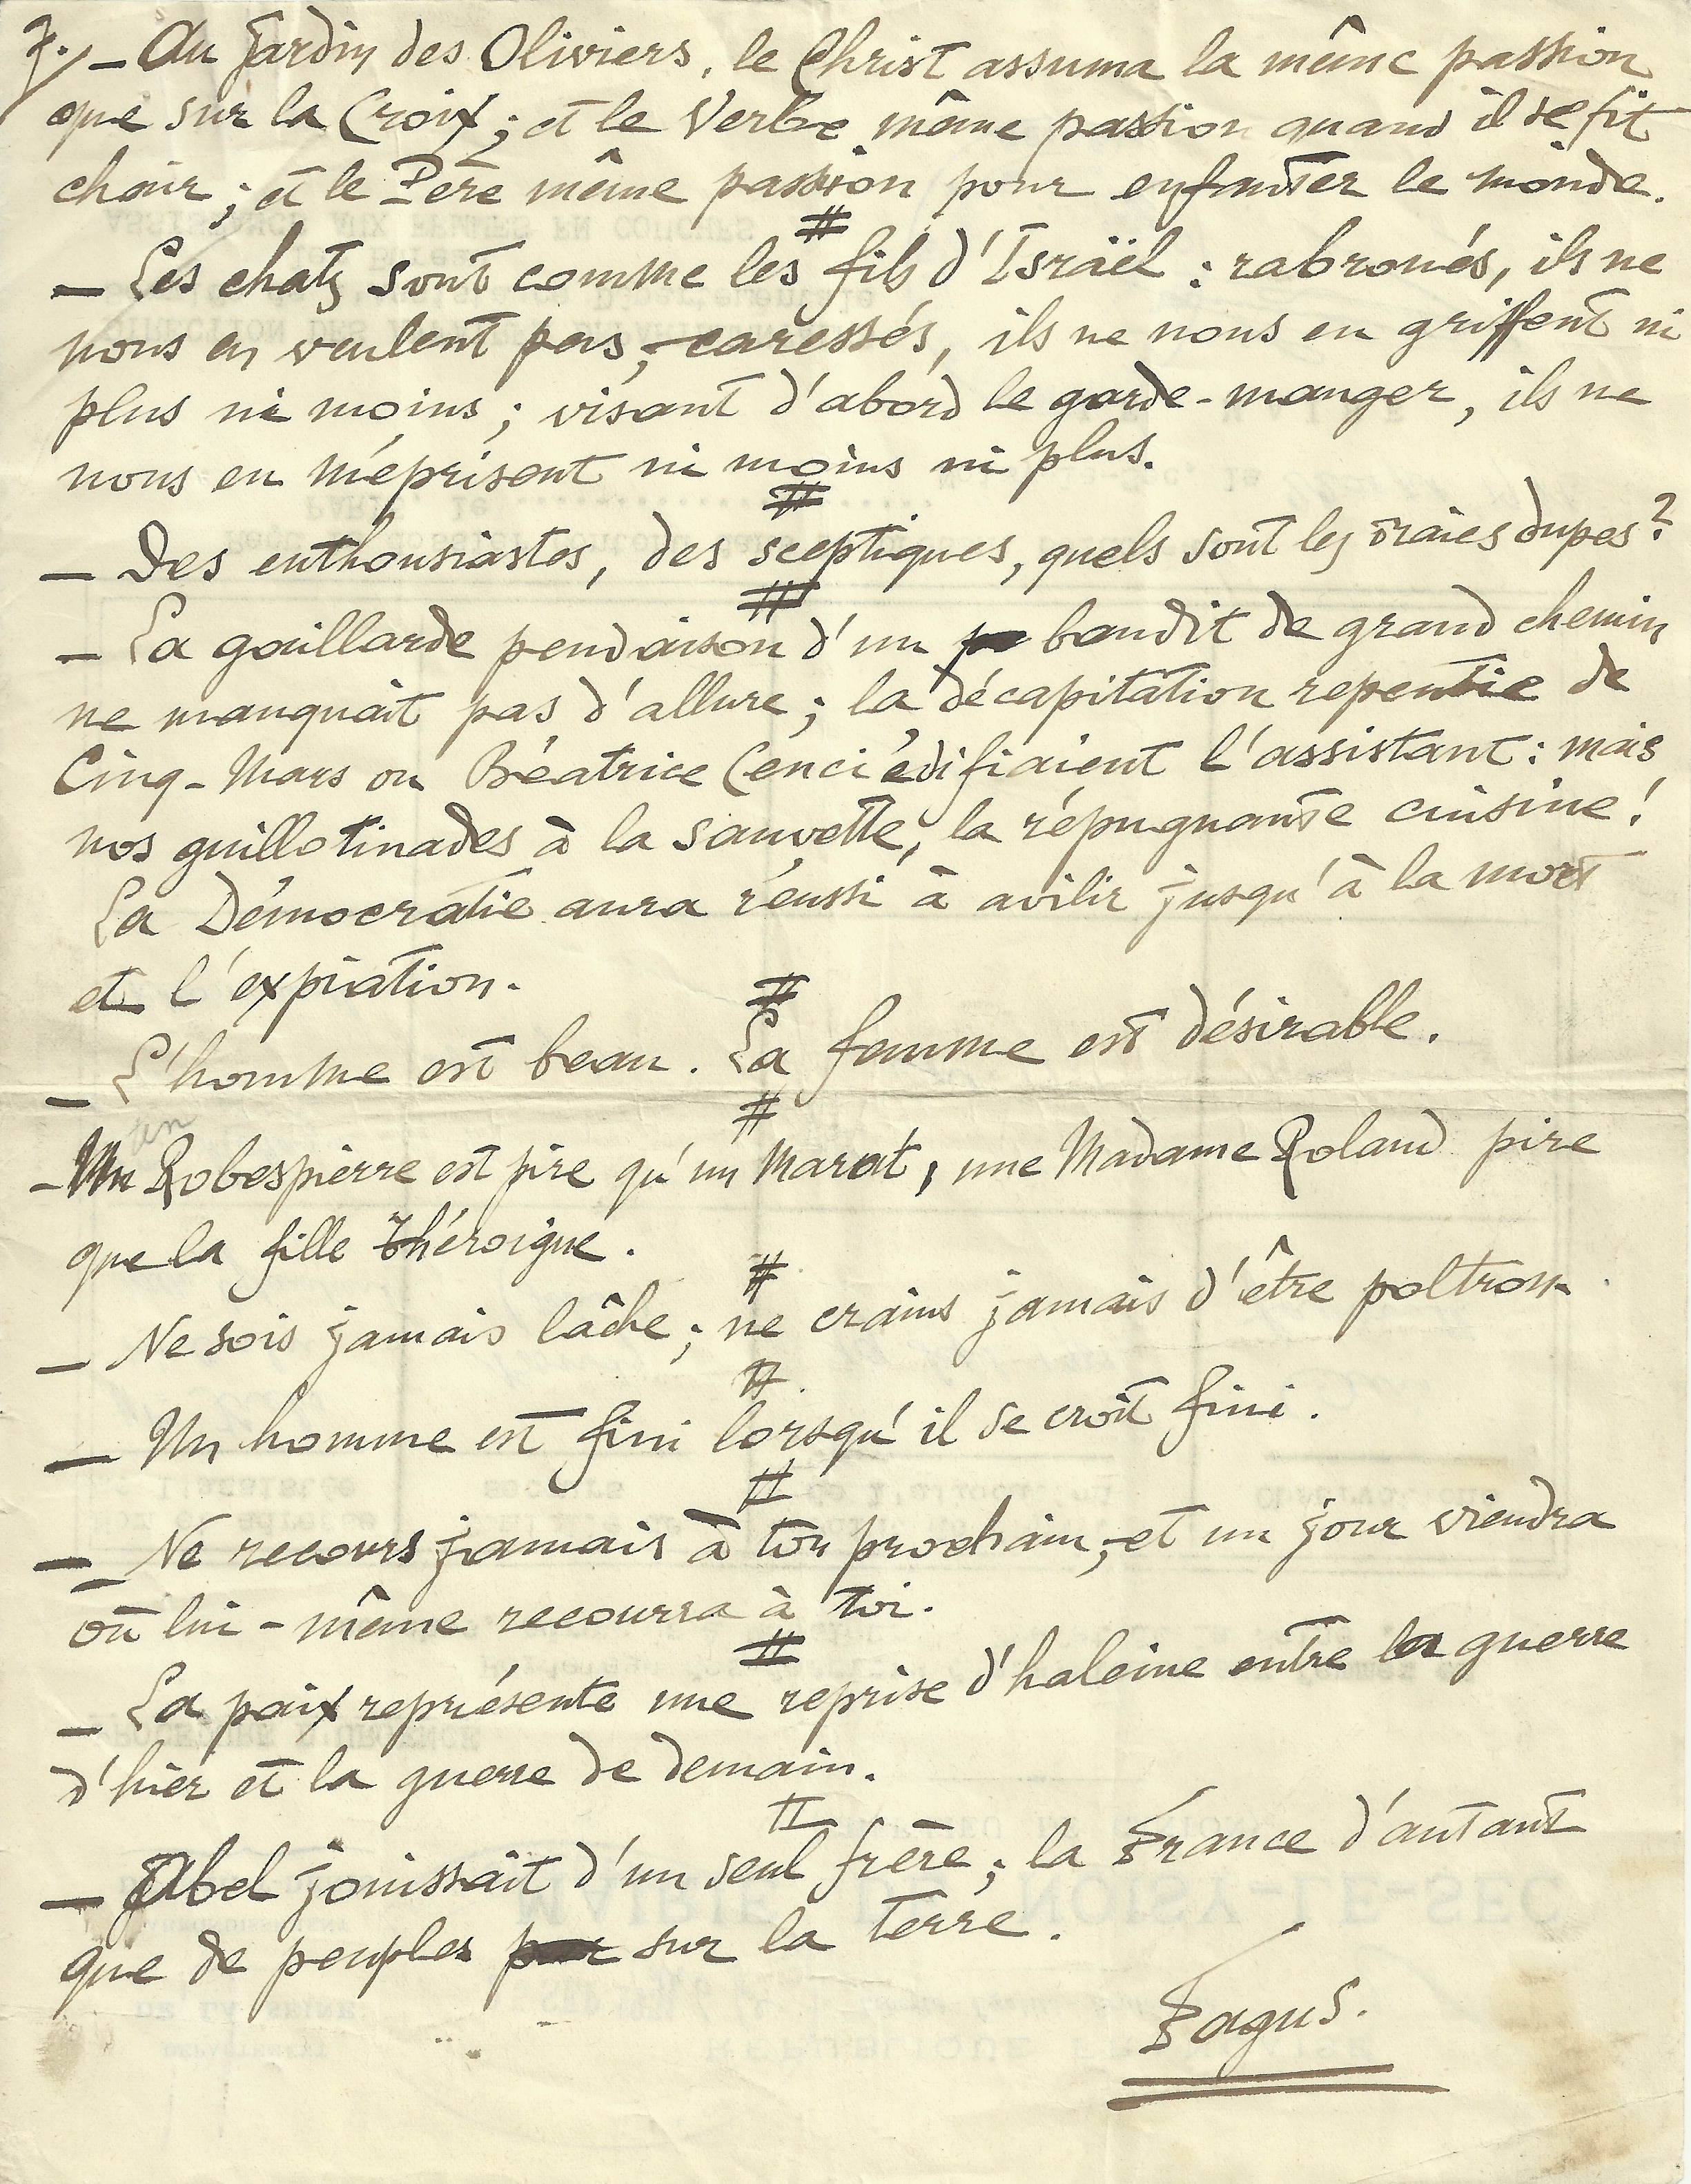 7./ — Au Jardin des Oliviers, le Christ assuma la même passion
que sur la Croix ; et le Verbe même passion quand il se fit
chair ; et le Père même passion pour enfanter le monde.
#
— Les chats sont comme les fils d'Israël : rabroués, ils ne
nous en veulent pas ; caressés, ils ne nous en griffent ni
plus ni moins ; visant d'abord le garde-manger, ils ne
nous en méprisent ni moins ni plus.
#
— Des enthousiastes, des sceptiques, quels sont les vraies dupes ?
#
— La gaillarde pendaison d'un bandit de grand chemin
ne manquait pas d'allure ; la décapitation repentie de
Cinq-Mars ou Béatrice Cenci édifiaient l'assistant : mais
nos guillotinades à la sauvette, la répugnante cuisine !
La Démocratie aura réussi à avilir jusqu'à la mort
et l'expiation.
#
— L'homme est beau. La femme est désirable.
#
un
— Un Robespierre est pire qu'un Marat, une Madame Roland pire
que la fille Théroigne.
#
— Ne sois jamais lâche ; ne crains jamais d'être poltron.
#
— Un homme est fini lorsqu'il se croit fini.
#
— Ne recours jamais à ton prochain ; et un jour viendra
où lui-même recourra à toi.
#
— La paix représente une reprise d'haleine entre la guerre
d'hier et la guerre de demain.
#
— Abel jouissait d'un seul frère ; la France d'autant
que de peuples sur la terre.
Fagus.